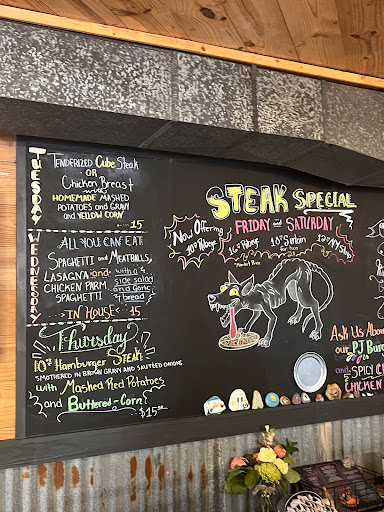 TUESDAY
TENDERIZED Cube Steak
OR
Chicken Breast
with
HOMEMADE MASHED
POTATOES and GRAVY
and YELLOW CORN
15
WEDNESDAY
ALL YOU CAN EAT
SPAGHETTI and MEATBALLS
LASAGNA and with a
CHICKEN PARM side salad
SPAGHETTI and Garlic
bread
IN HOUSE 15
Thursday
10oz Hamburger Steak
SMOTHERED IN BROWN GRAVY AND SAUTÉED ONIONS
with MASHED RED POTATOES
and Buttered-Corn $15.00
STEAK SPECIAL
FRIDAY and SATURDAY
Now Offering
10oz Ribeye
16oz Ribeye
10oz Sirloin
12oz NY Strip
Market Price
Ask Us Abou
our PJ Bur
and SPICY
CHICKEN